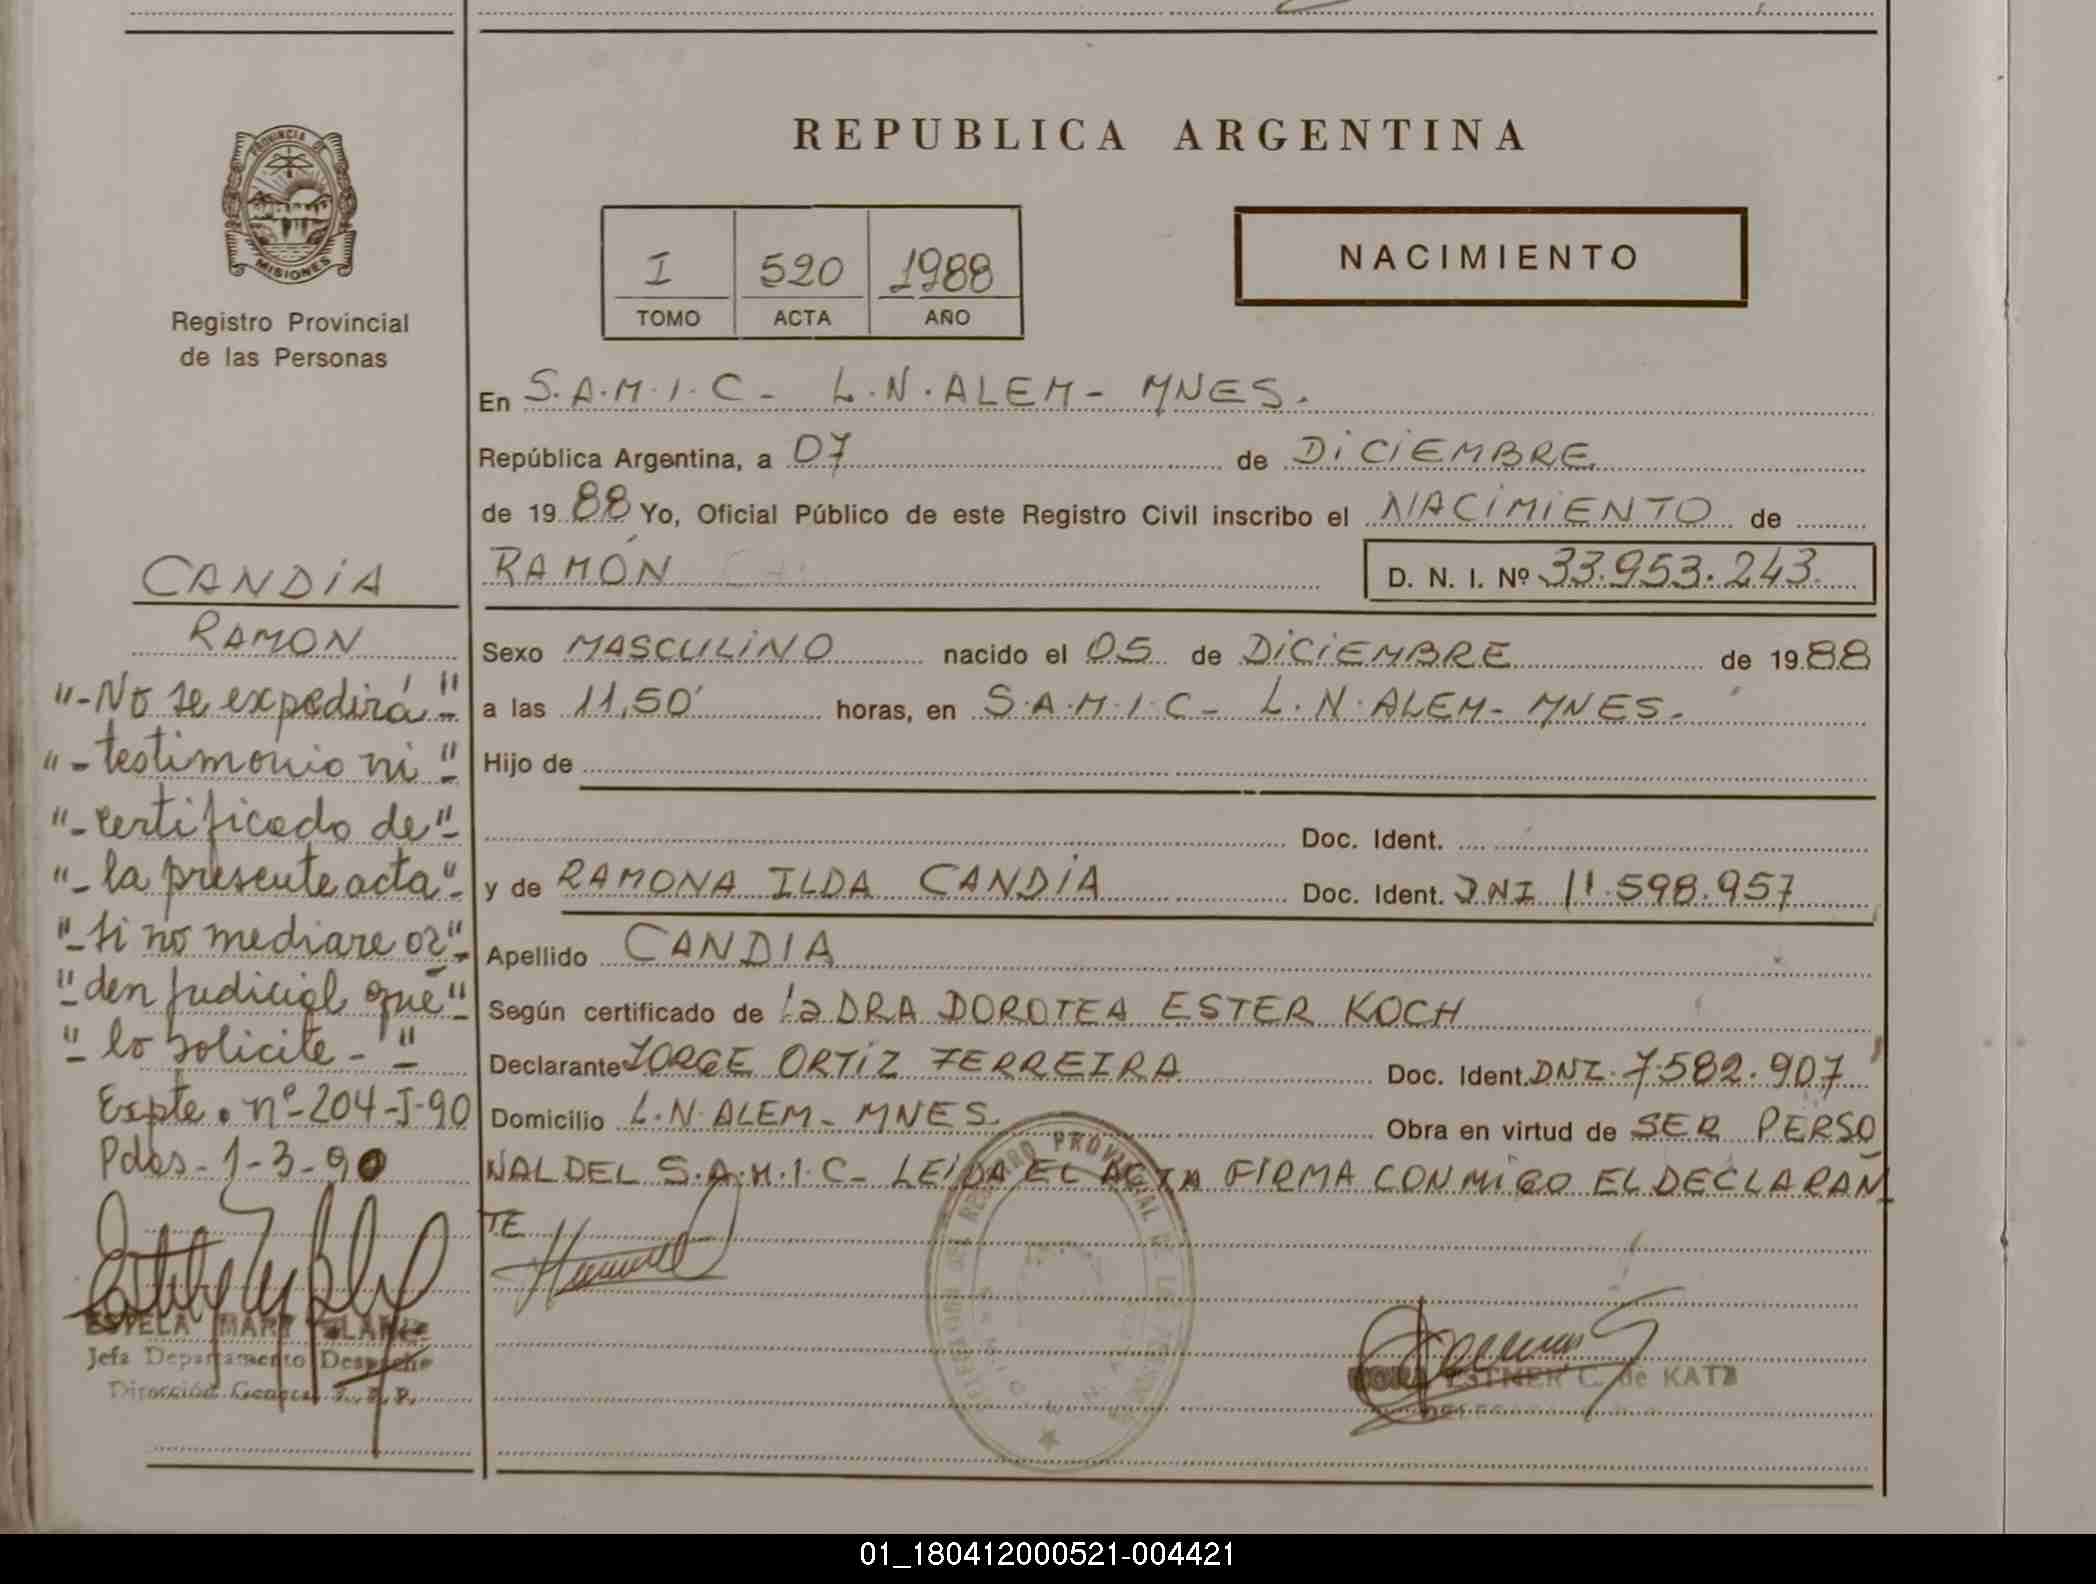 REPUBLICA ARGENTINA
PROVINCIA DE
MISIONES
Registro Provincial
de las Personas
I 520 1988
TOMO ACTA AÑO
NACIMIENTO
En S.A.M.I.C- L.N.ALEM- MNES.
República Argentina, a 07 de DiCiEMBRE
de 1988 Yo, Oficial Público de este Registro Civil inscribo el NACiMiENTO de
RAMÓN D. N. I. Nº 33.953.243.
Sexo MASCULiNO nacido el 05 de DiCiEMBRE de 1988
a las 11,50' horas, en S.A.M.I.C- L.N.ALEM- MNES.
Hijo de
Doc. Ident.
y de RAMONA ILDA CANDÍA Doc. Ident. DNI 11.598.957
Apellido CANDIA
Según certificado de la DRA DOROTEA ESTER KOCH
Declarante JORGE ORTiZ FERREIRA Doc. Ident. DNI. 7.582.907
Domicilio L.N.ALEM- MNES. Obra en virtud de SER PERSO
NAL DEL S.A.M.I.C- LEiDA EL ACTA FIRMA CONMiGO EL DECLARAN
TE
CANDÍA
RAMON
"-No se expedirá"-
"-testimonio ni"-
"-certificado de"-
"-la presente acta"-
"-si no mediare or"-
"-den judicial que"-
"-lo solicite-"-
Expte. nº-204-J-90
Pdas-1-3-90
ESTELA MARY
Jefa Departamento Despacho
Dirección
REGISTRO PROVINCIAL DE LAS PERSONAS
ESTHER C. de KATZ
01_180412000521-004421